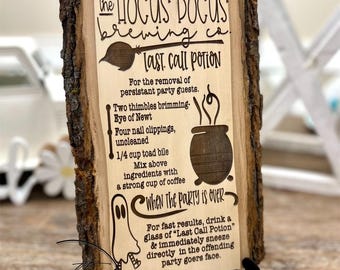 the HOCUS POCUS
brewing co.
LAST CALL POTION
For the removal of
persistant party guests.
Two thimbles brimming-
Eye of Newt
Four nail clippings,
uncleaned
1/4 cup toad bile
Mix above
ingredients with
a strong cup of coffee
WHEN THE PARTY IS OVER
For fast results, drink a
glass of "Last Call Potion"
& immediately sneeze
directly in the offending
party goers face.